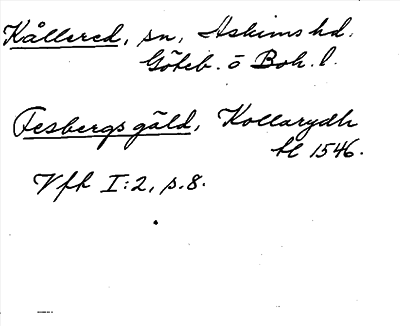 Kållered, sn, Askims hd.
Göteb. o Boh. l.
Fesbergs gäld, Kollarydh
hl 1546.
Vfh I:2, s. 8.